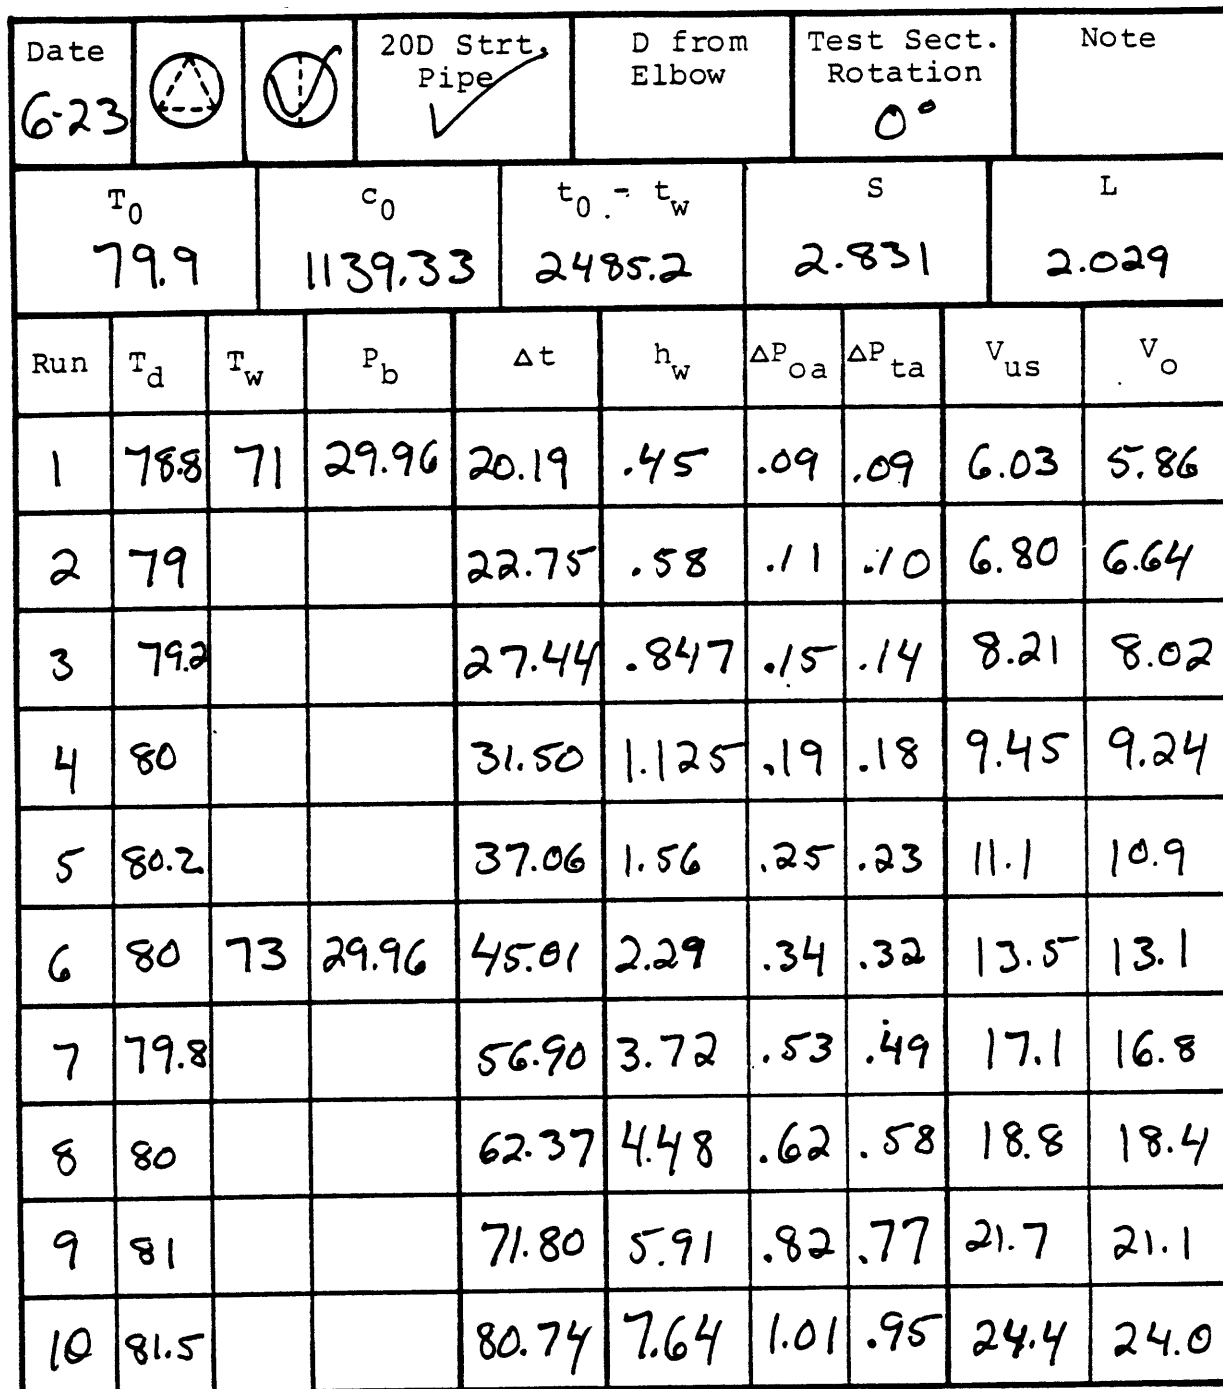 Date 20D Strt. D from Test Sect. Note
Pipe Elbow Rotation
6-23 0°
T0 c0 t0 - tw S L
79.9 1139.33 2485.2 2.831 2.029
Run Td Tw Pb Δt hw ΔPoa ΔPta Vus Vo
1 78.8 71 29.96 20.19 .45 .09 .09 6.03 5.86
2 79 22.75 .58 .11 .10 6.80 6.64
3 79.2 27.44 .847 .15 .14 8.21 8.02
4 80 31.50 1.125 .19 .18 9.45 9.24
5 80.2 37.06 1.56 .25 .23 11.1 10.9
6 80 73 29.96 45.01 2.29 .34 .32 13.5 13.1
7 79.8 56.90 3.72 .53 .49 17.1 16.8
8 80 62.37 4.48 .62 .58 18.8 18.4
9 81 71.80 5.91 .82 .77 21.7 21.1
10 81.5 80.74 7.64 1.01 .95 24.4 24.0